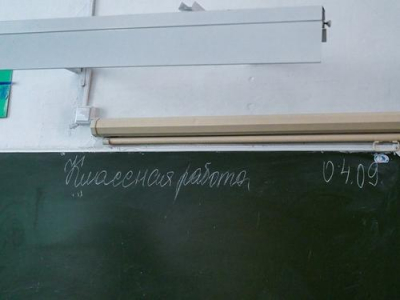 Классная работа,
04.09